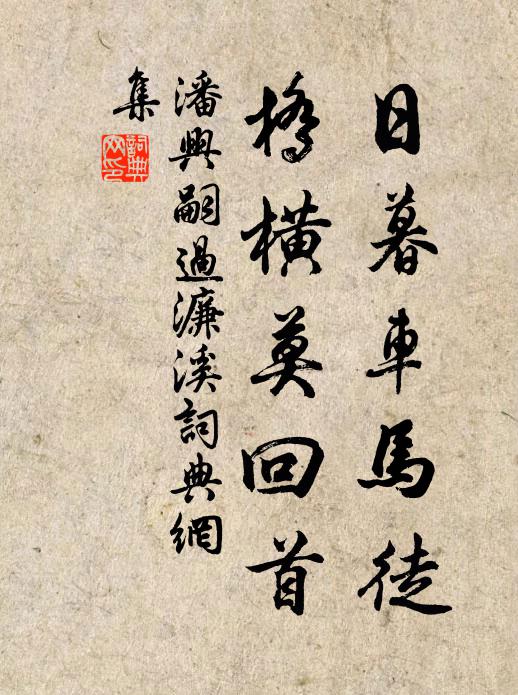 日暮車馬徒
橋橫莫回首
潘興嗣過濂溪詞典網
集
詞典
网印